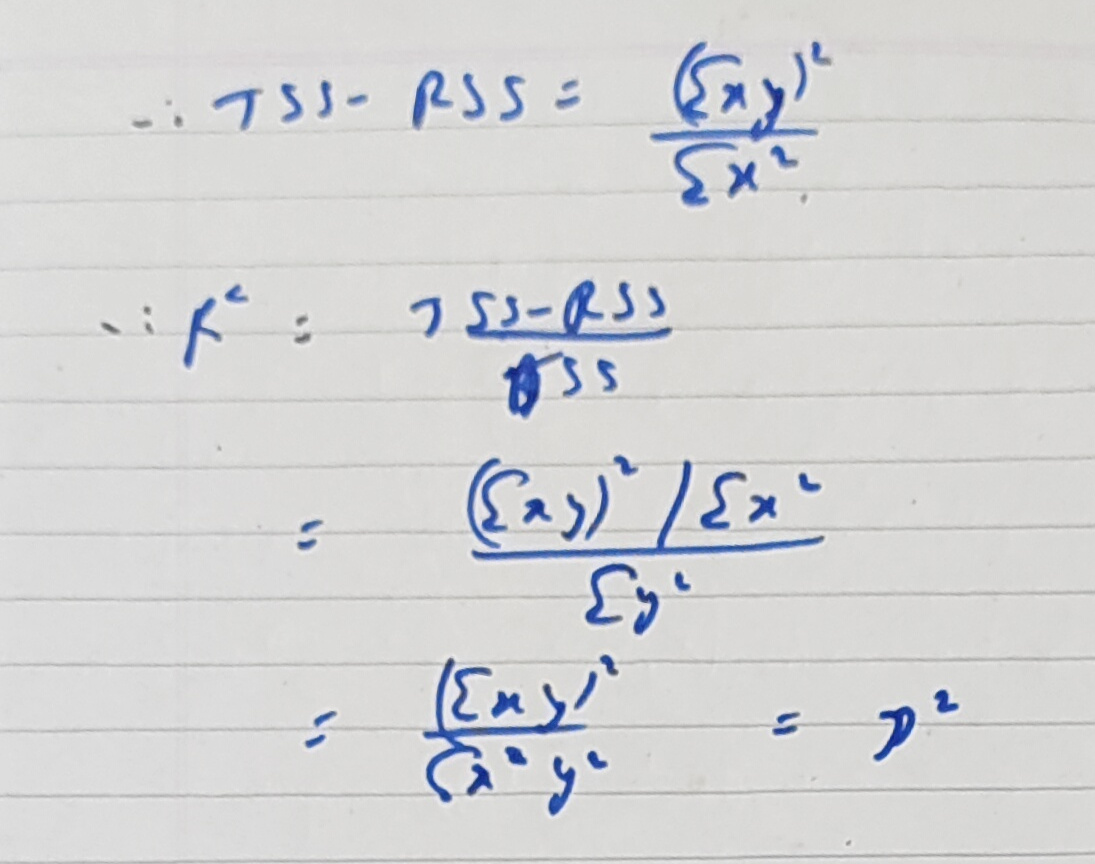 ∴ TSS - RSS = (Σxy)² / Σx²
∴ R² = TSS - RSS / TSS
= (Σxy)² / Σx² / Σy²
= (Σxy)² / Σx² y² = r²